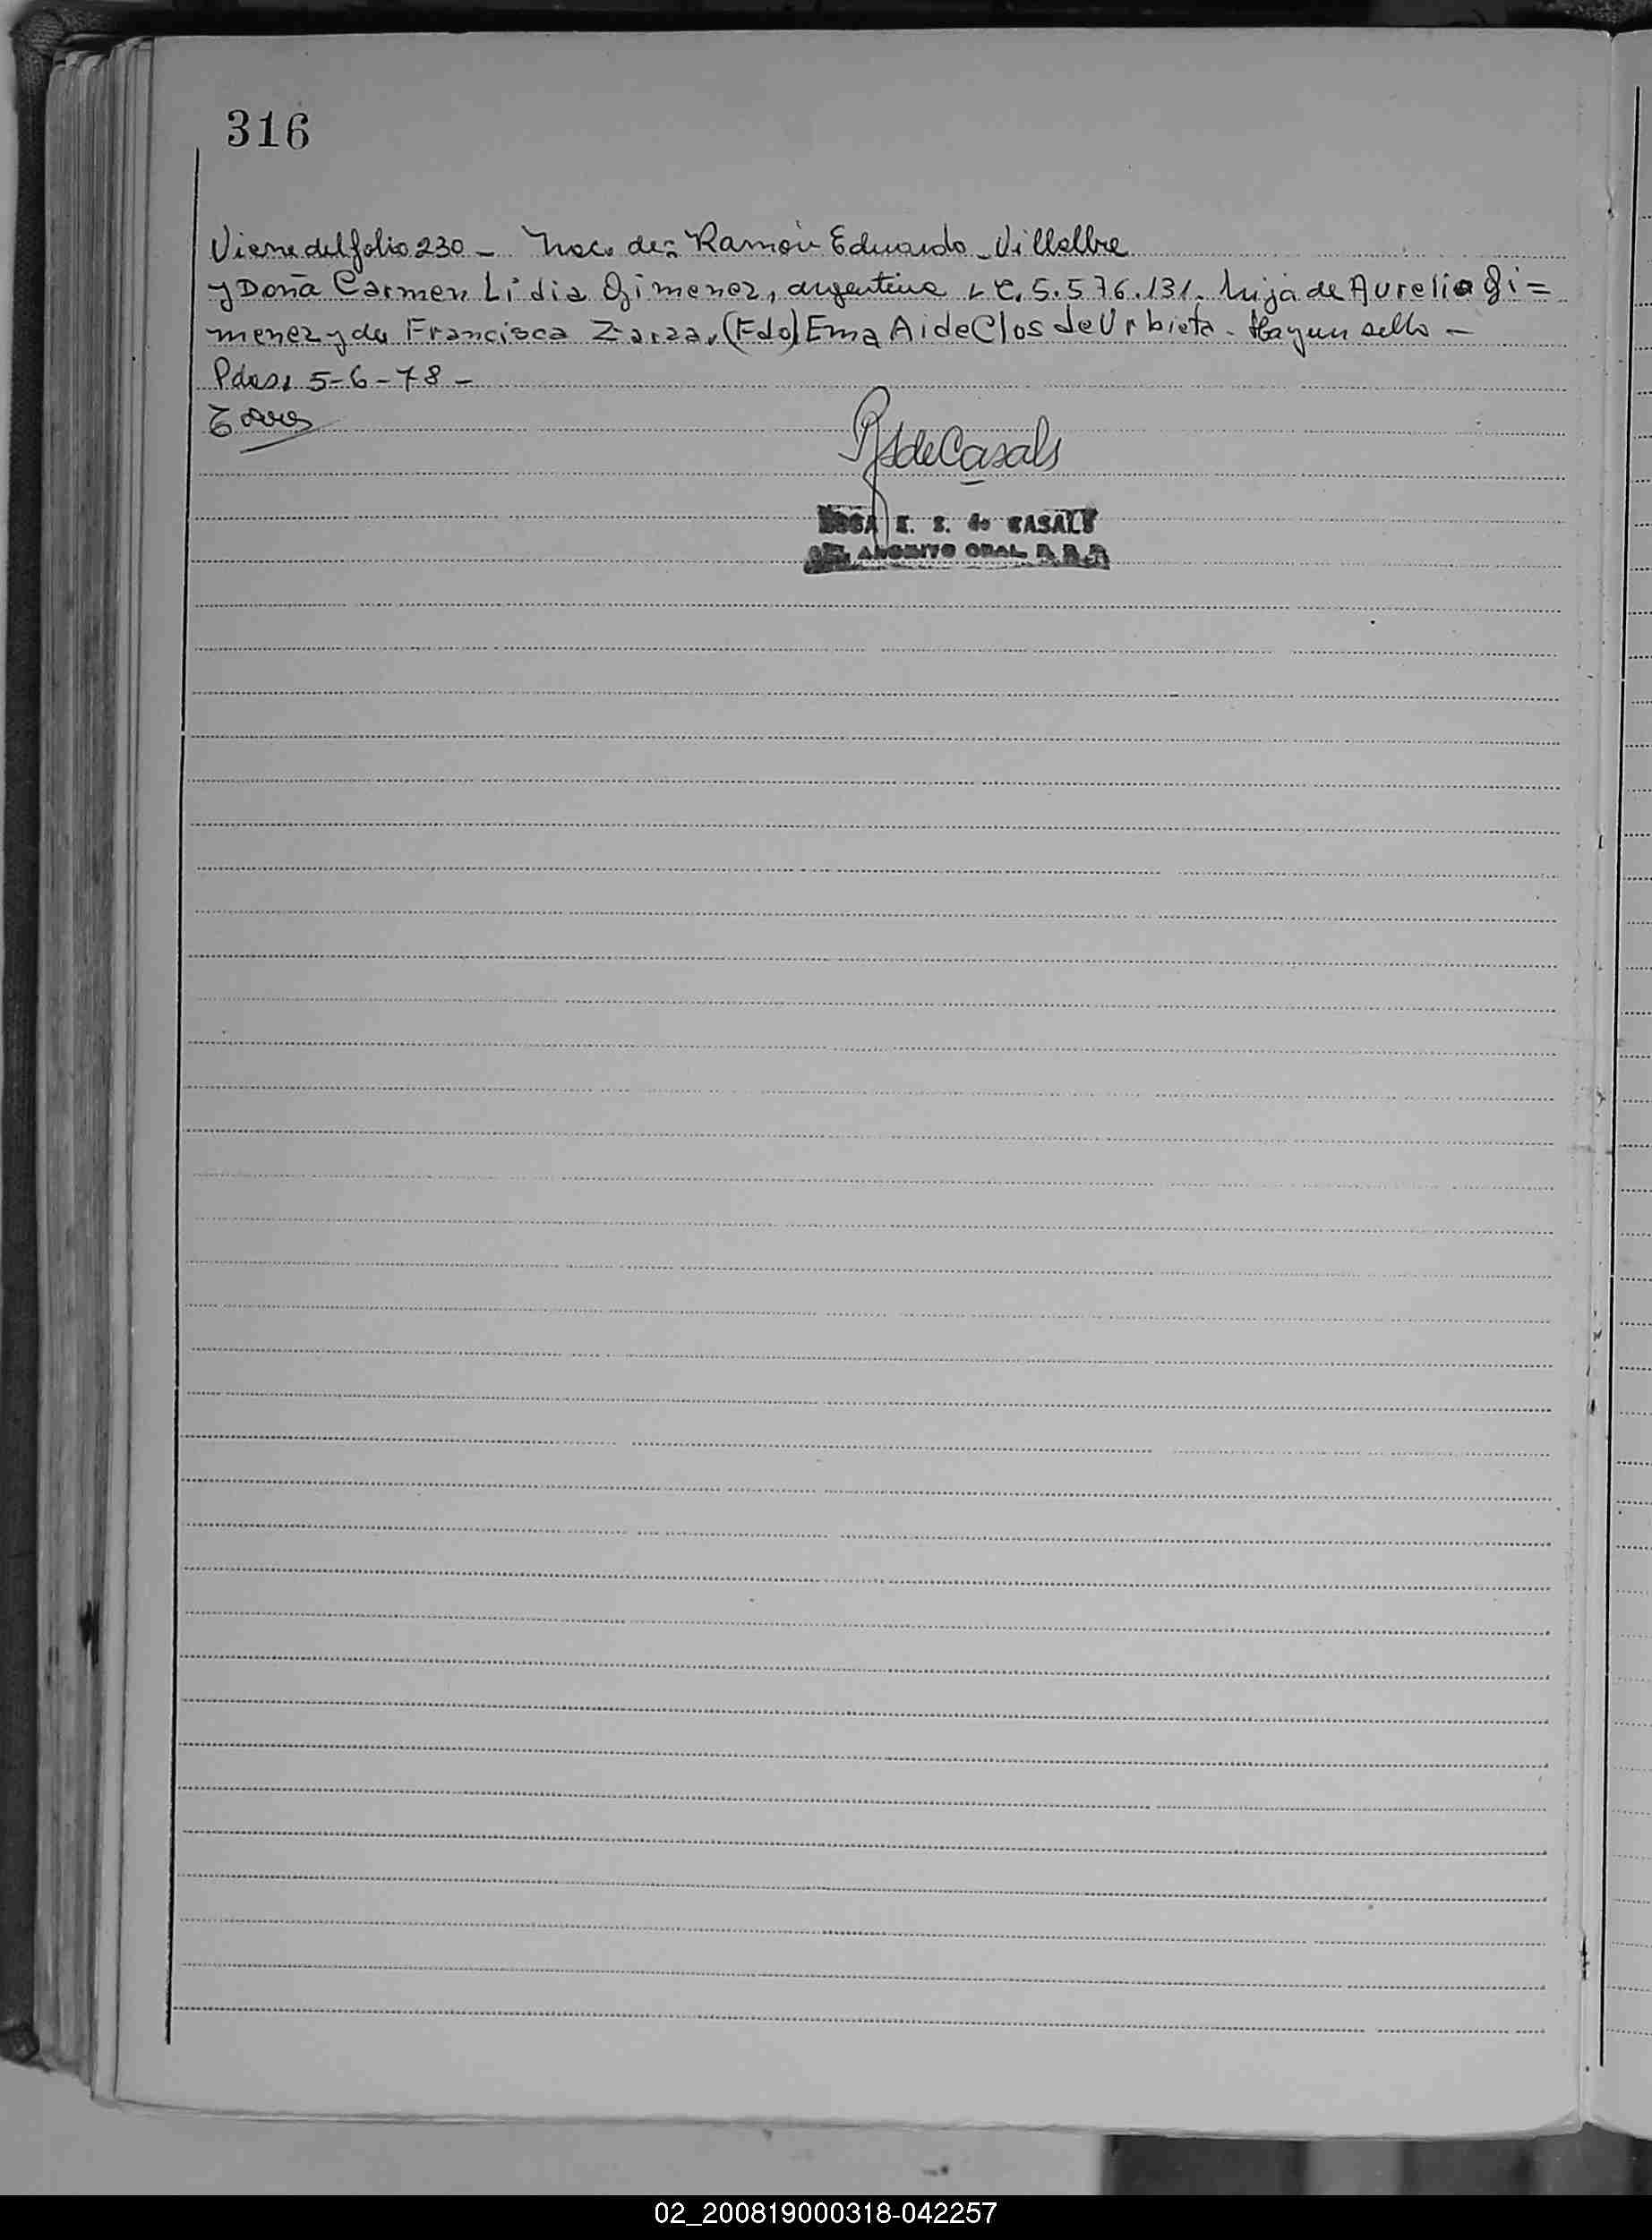 316
Viene del folio 230 - Nac. de: Ramón Eduardo Villalba
y Doña Carmen Lidia Gimenez, argentina L C. 5.576.131. hija de Aurelio Gi=
menez y de Francisca Zarza. (Fdo) Ema Aide Clos de Urbieta - Hay un sello -
Pdas. 5-6-78 -
RS de Casals
S. de CASALS
ARCHIVO GRAL.
02_200819000318-042257